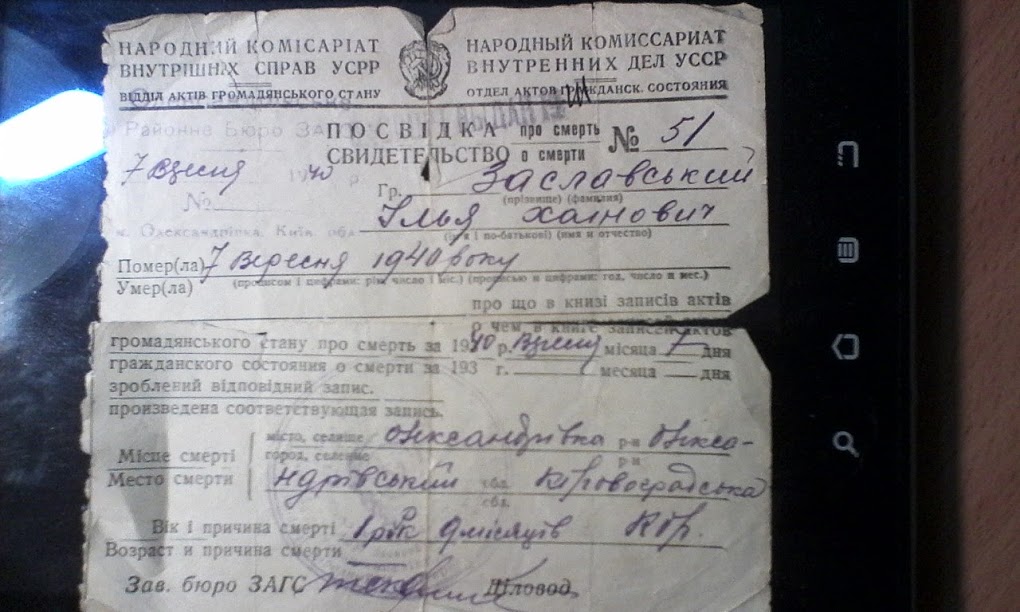 НАРОДНИЙ КОМІСАРІАТ
ВНУТРІШНІХ СПРАВ УСРР
ВІДДІЛ АКТІВ ГРОМАДЯНСЬКОГО СТАНУ
НАРОДНЫЙ КОМИССАРИАТ
ВНУТРЕННИХ ДЕЛ УССР
ОТДЕЛ АКТОВ ГРАЖДАНСК. СОСТОЯНИЯ
Районне Бюро ЗАГС
ПОСВІДКА про смерть
СВИДЕТЕЛЬСТВО о смерти
№ 51
7 Вересня 1940 р.
№
Гр. Заславський
(прізвище) (фамилия)
Ілья Хаїнович
м. Олександрівка, Київ. обл.
(ім'я і по-батькові) (имя и отчество)
Помер(ла) 7 Вересня 1940 року
Умер(ла)
(прописом і цифрами: рік, число і міс.) (прописью и цифрами: год, число и мес.)
про що в книзі записів актів
о чем в книге записей актов
громадянського стану про смерть за 1940 р. Вересня місяца 7 дня
гражданского состояния о смерти за 193 г. месяца дня
зроблений відповідний запис.
произведена соответствующая запись.
Місце смерті
Место смерти
місто, селище Олександрівка р-н Олекса-
город, селение р-н
ндрівський обл. Кіровоградська
обл.
Вік і причина смерті 1 рік 9 місяців Кір.
Возраст и причина смерти
Зав. бюро ЗАГС
Діловод